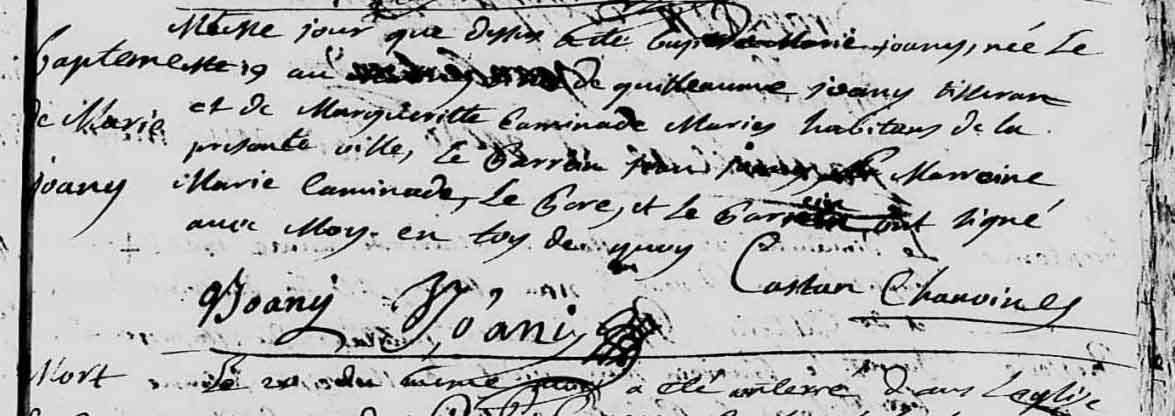 Meme jour que dessus a ete baptisée Marie joany, née le
Bapteme
de Marie
joany
19 au de guilleaume joany tisseran
et de Margueritte Caminade Mariés habitans de la
presente ville, le Parrein jean joany, la Marreine
Marie Caminade, Le Pere, et le Parrein ont signé
avec Moy en foy de quoy
Joany Joani Castan Chanoine
Mort
Le du meme mois a été enterré dans L'eglise